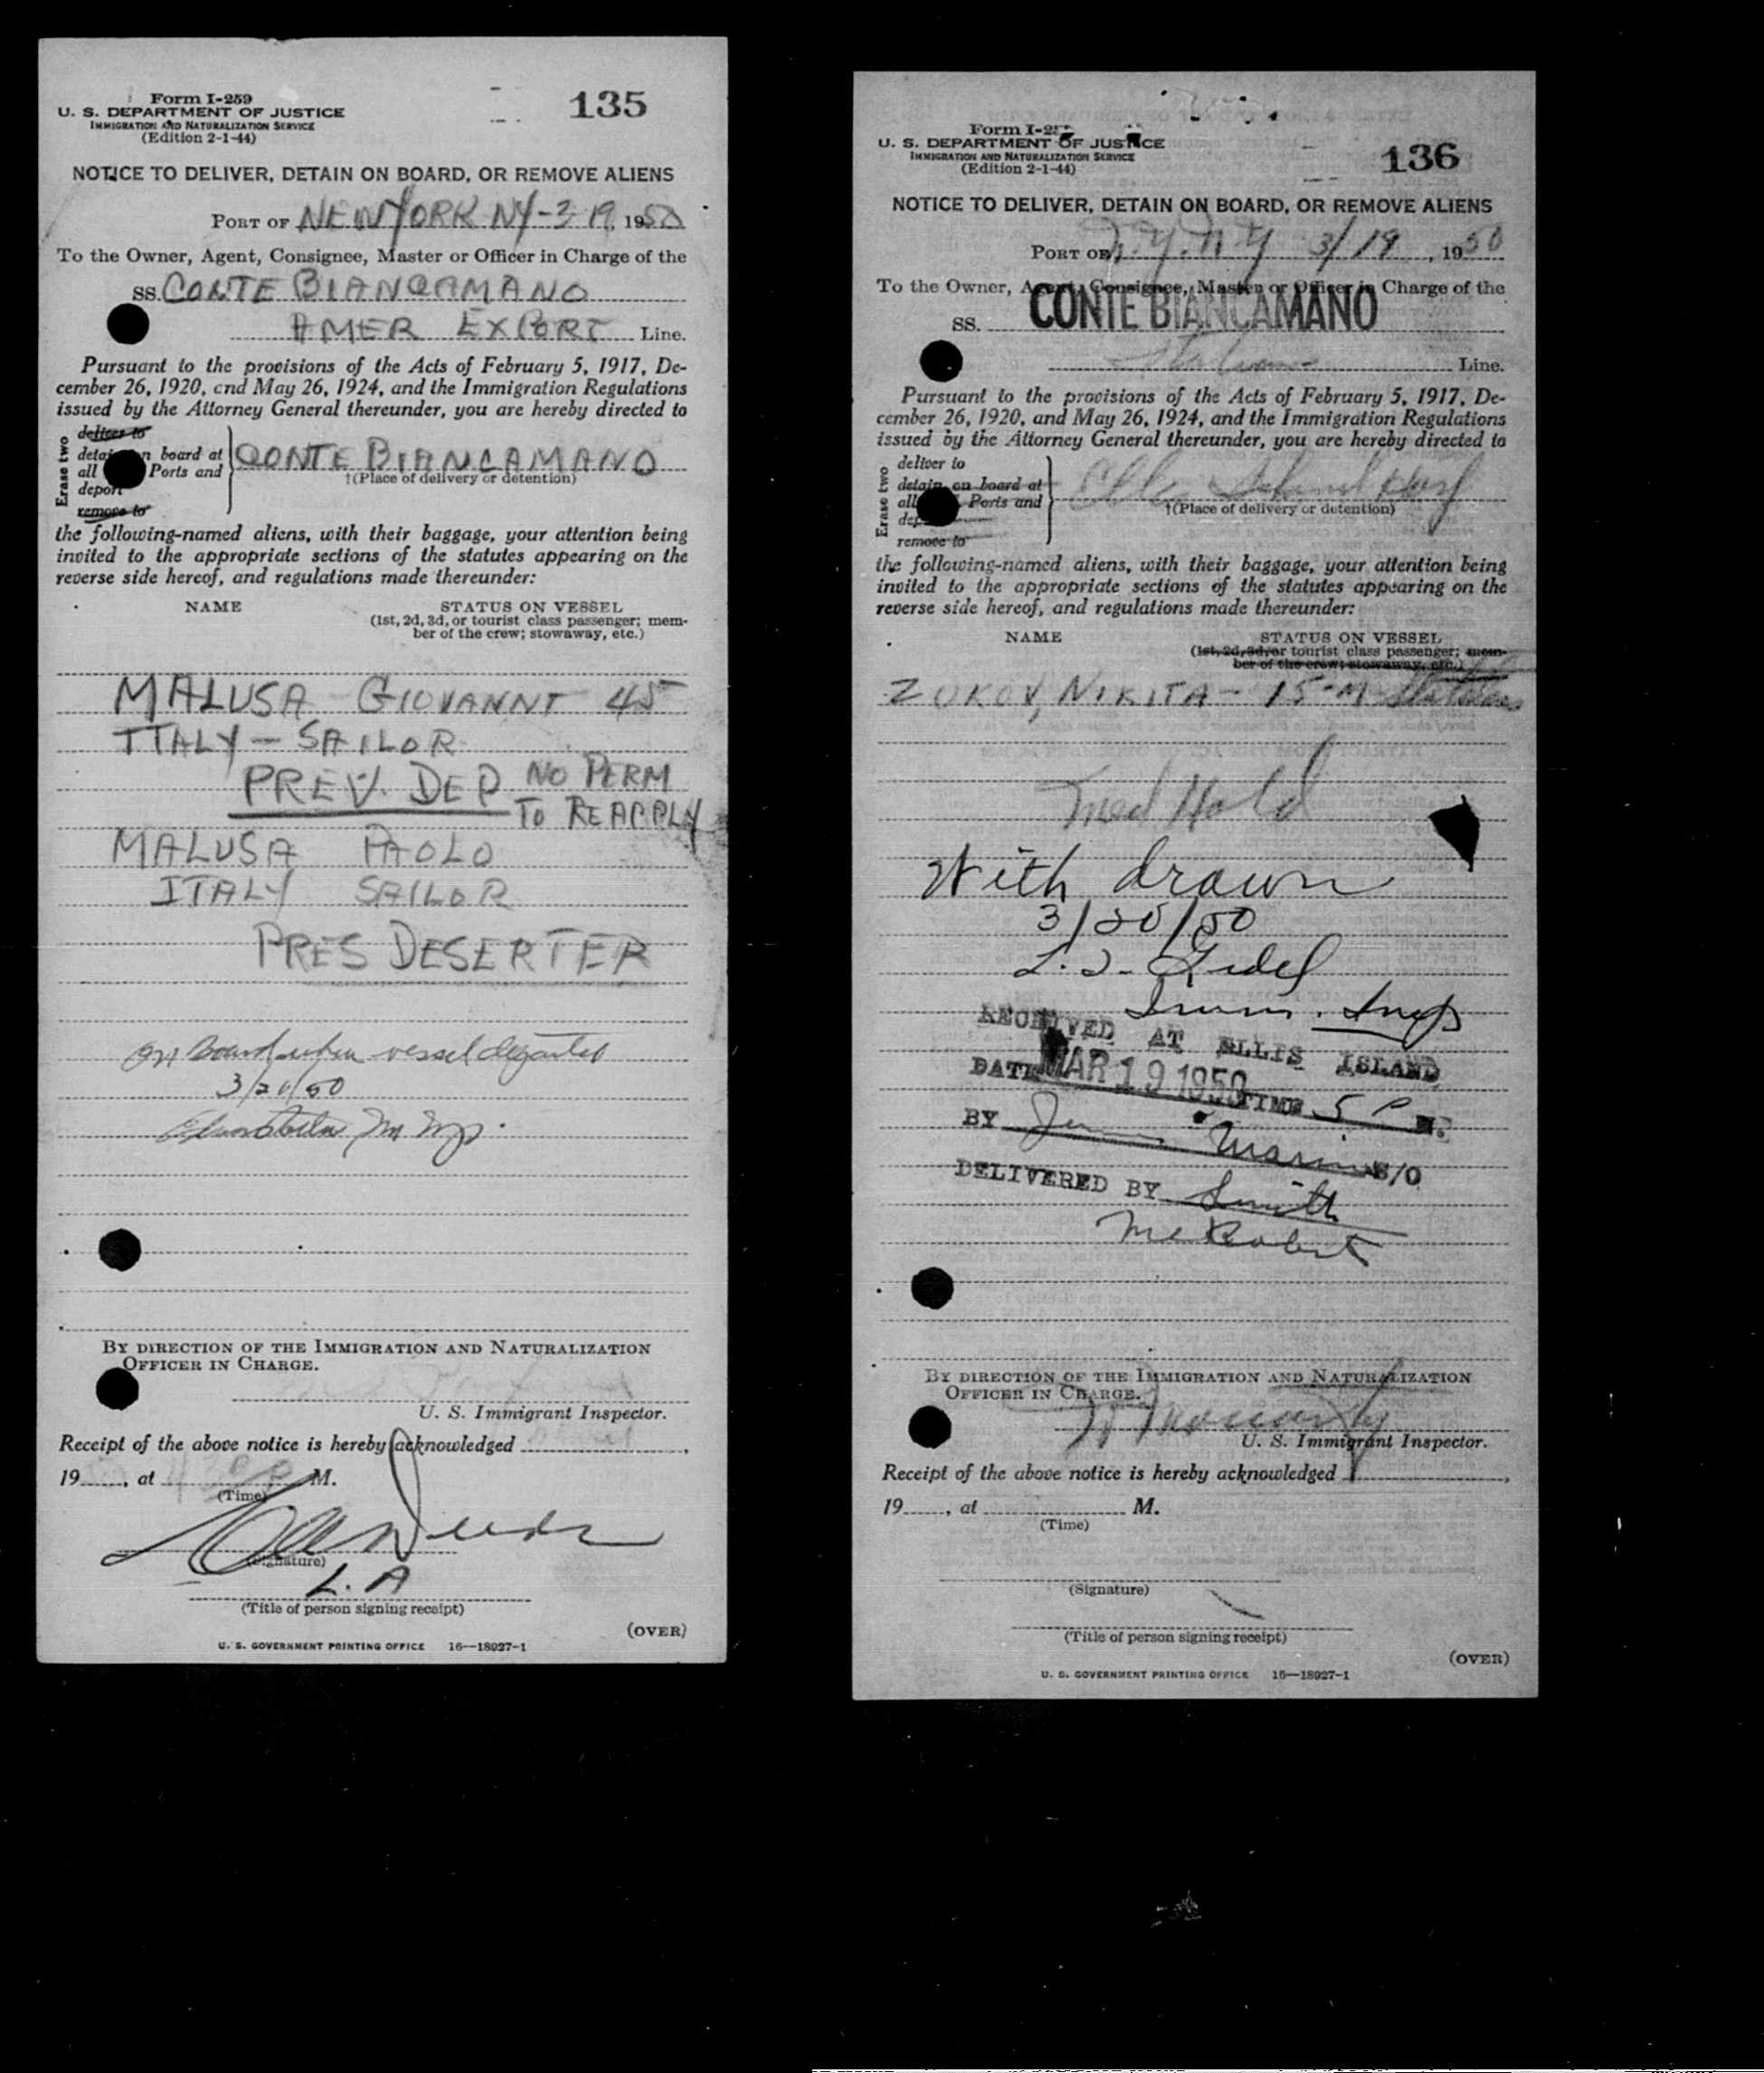 Form I-259
U. S. DEPARTMENT OF JUSTICE
IMMIGRATION AND NATURALIZATION SERVICE
(Edition 2-1-44)
135
NOTICE TO DELIVER, DETAIN ON BOARD, OR REMOVE ALIENS
PORT OF NEW YORK NY - 3 19, 1950
To the Owner, Agent, Consignee, Master or Officer in Charge of the
SS. CONTE BIANCAMANO
AMER EXPORT Line.
Pursuant to the provisions of the Acts of February 5, 1917, De-
cember 26, 1920, and May 26, 1924, and the Immigration Regulations
issued by the Attorney General thereunder, you are hereby directed to
Erase two
deliver to
detain on board at
all Ports and
deport
remove to
CONTE BIANCAMANO
†(Place of delivery or detention)
the following-named aliens, with their baggage, your attention being
invited to the appropriate sections of the statutes appearing on the
reverse side hereof, and regulations made thereunder:
NAME
STATUS ON VESSEL
(1st, 2d, 3d, or tourist class passenger; mem-
ber of the crew; stowaway, etc.)
MALUSA GIOVANNI 45
ITALY - SAILOR
PREV. DEP NO PERM
TO REAPPLY
MALUSA PAOLO
ITALY SAILOR
PRES DESERTER
On Board when vessel departed
3/20/50
BY DIRECTION OF THE IMMIGRATION AND NATURALIZATION
OFFICER IN CHARGE.
U. S. Immigrant Inspector.
Receipt of the above notice is hereby acknowledged
19, at M.
(Time)
(Signature)
L. A
(Title of person signing receipt)
(OVER)
U. S. GOVERNMENT PRINTING OFFICE 16—18927-1
Form I-25
U. S. DEPARTMENT OF JUSTICE
IMMIGRATION AND NATURALIZATION SERVICE
(Edition 2-1-44)
136
NOTICE TO DELIVER, DETAIN ON BOARD, OR REMOVE ALIENS
PORT OF N.Y. N.Y 3/19, 1950
To the Owner, Agent, Consignee, Master or Officer in Charge of the
SS. CONTE BIANCAMANO
Italian Line.
Pursuant to the provisions of the Acts of February 5, 1917, De-
cember 26, 1920, and May 26, 1924, and the Immigration Regulations
issued by the Attorney General thereunder, you are hereby directed to
Erase two
deliver to
detain on board at
all Ports and
dep
remove to
Ellis Island
†(Place of delivery or detention)
the following-named aliens, with their baggage, your attention being
invited to the appropriate sections of the statutes appearing on the
reverse side hereof, and regulations made thereunder:
NAME
STATUS ON VESSEL
(1st, 2d, 3d, or tourist class passenger; mem-
ber of the crew; stowaway, etc.)
ZUKOV, NIKITA - 15-M
Med Hold
With drawn
3/20/50
Imm. Insp
RECEIVED AT ELLIS ISLAND
DATE MAR 19 1950 TIME 5 P M.
BY S/O
DELIVERED BY Smith
BY DIRECTION OF THE IMMIGRATION AND NATURALIZATION
OFFICER IN CHARGE.
U. S. Immigrant Inspector.
Receipt of the above notice is hereby acknowledged
19, at M.
(Time)
(Signature)
(Title of person signing receipt)
(OVER)
U. S. GOVERNMENT PRINTING OFFICE 16—18927-1